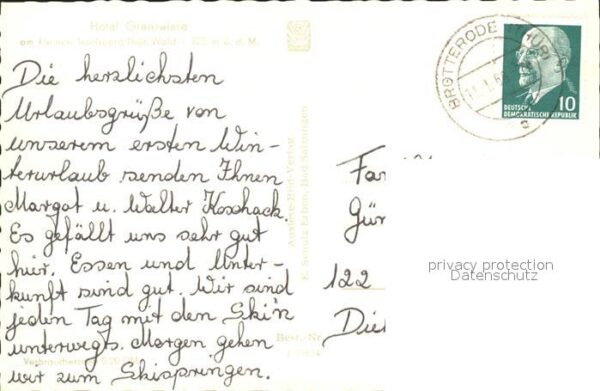 Hotel Grenzwiese
am kleinen Inselsberg Thür. Wald · 725 m ü. d. M.
Die herzlichsten
Urlaubsgrüße von
unserem ersten Win-
terurlaub senden Ihnen
Margot u. Walter Koschack.
Es gefällt uns sehr gut
hier. Essen und Unter-
kunft sind gut. Wir sind
jeden Tag mit den Ski'n
unterwegs. Morgen gehen
wir zum Skispringen.
Verbraucherpreis
Auslese-Bild-Verlag
E. Schütz Erben, Bad Salzungen
Best.-Nr.
BROTTERODE
DEUTSCHE
DEMOKRATISCHE REPUBLIK
10
Fa
Gür
122
Die
privacy protection
Datenschutz